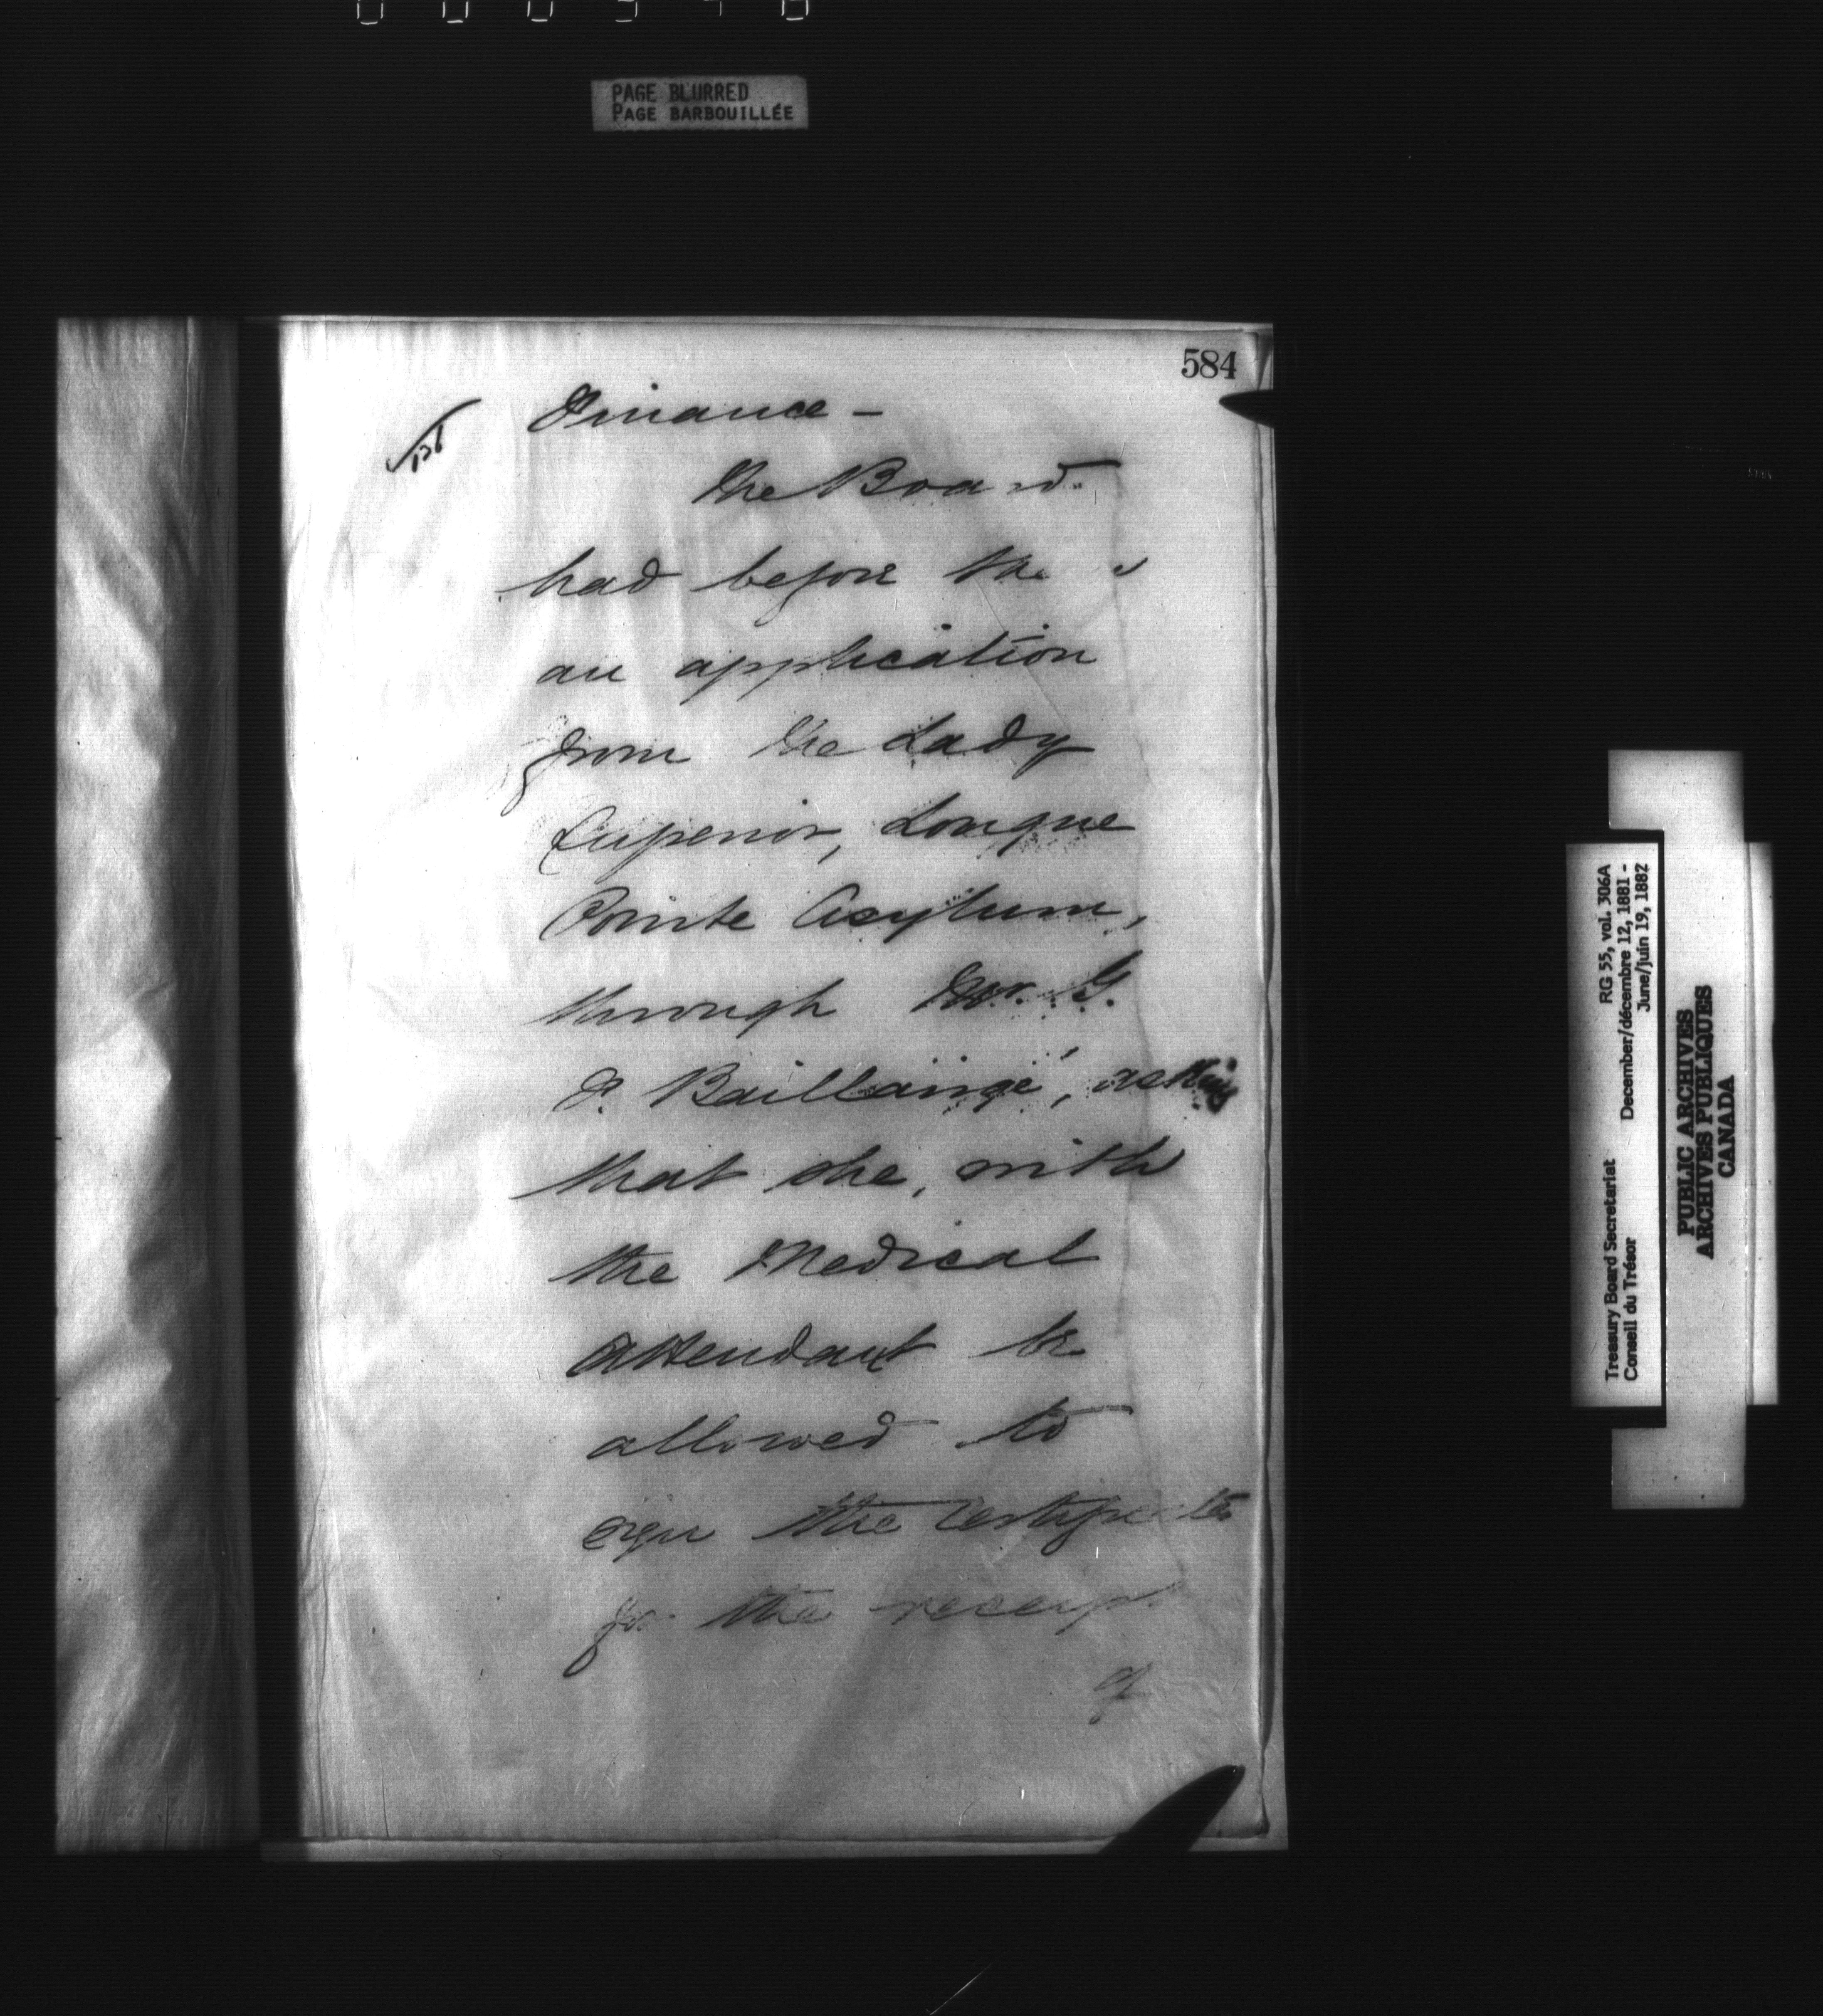 PAGE BLURRED
PAGE BARBOUILLÉE
584
Finance -
The Board
had before the
an application
from the Lady
Superior, Longue
Pointe Asylum,
through Mr. G.
F. Baillairgé, asking
that she, with
the Medical
Attendant be
allowed to
sign the Certificates
for the receipt
of
RG 55, vol. 306A
Treasury Board Secretariat December/décembre 12, 1881 -
Conseil du Trésor June/juin 19, 1882
PUBLIC ARCHIVES
ARCHIVES PUBLIQUES
CANADA